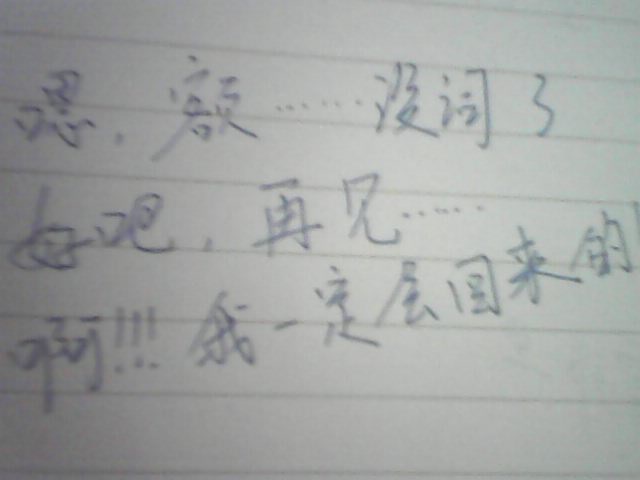 嗯，额……没词了
好吧，再见……
啊!!! 我一定会回来的